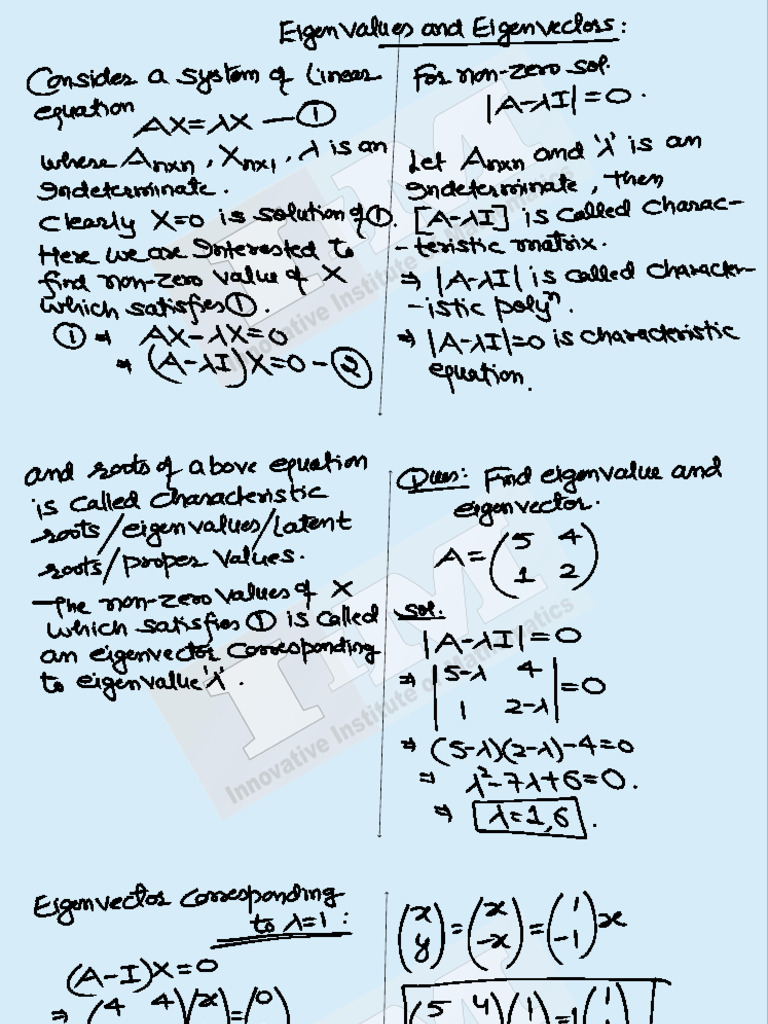 Eigenvalues and Eigenvectors:
Consider a system of linear
equation
AX=λX —①
where Anxn, Xnx1, λ is an
Indeterminate.
Clearly X=0 is solution of ①.
Here we are Interested to
find non-zero value of X
which satisfies ①.
① ⇒ AX-λX=0
⇒ (A-λI)X=0 -②
For non-zero sol.
|A-λI|=0.
Let Anxn and 'λ' is an
Indeterminate, Then
[A-λI] is called charac-
-teristic matrix.
⇒ |A-λI| is called character-
-istic polyⁿ.
⇒ |A-λI|=0 is characteristic
equation.
and roots of above equation
is called characteristic
roots/eigenvalues/latent
roots/proper values.
-The non-zero values of X
which satisfies ① is called
an eigenvector corresponding
to eigenvalue 'λ'.
Ques: Find eigenvalue and
eigenvector.
A=(5 4
1 2)
Sol.
|A-λI|=0
⇒ |5-λ 4
1 2-λ|=0
⇒ (5-λ)(2-λ)-4=0
⇒ λ²-7λ+6=0.
⇒ λ=1,6.
Eigenvector corresponding
to λ=1:
(A-I)X=0
⇒ (4 4)(x)=(0)
(x
y)=(x
-x)=(1
-1)x
(5 4)(1)=1(1)
IIM
Innovative Institute of Mathematics
IIM
Innovative Institute of Mathematics